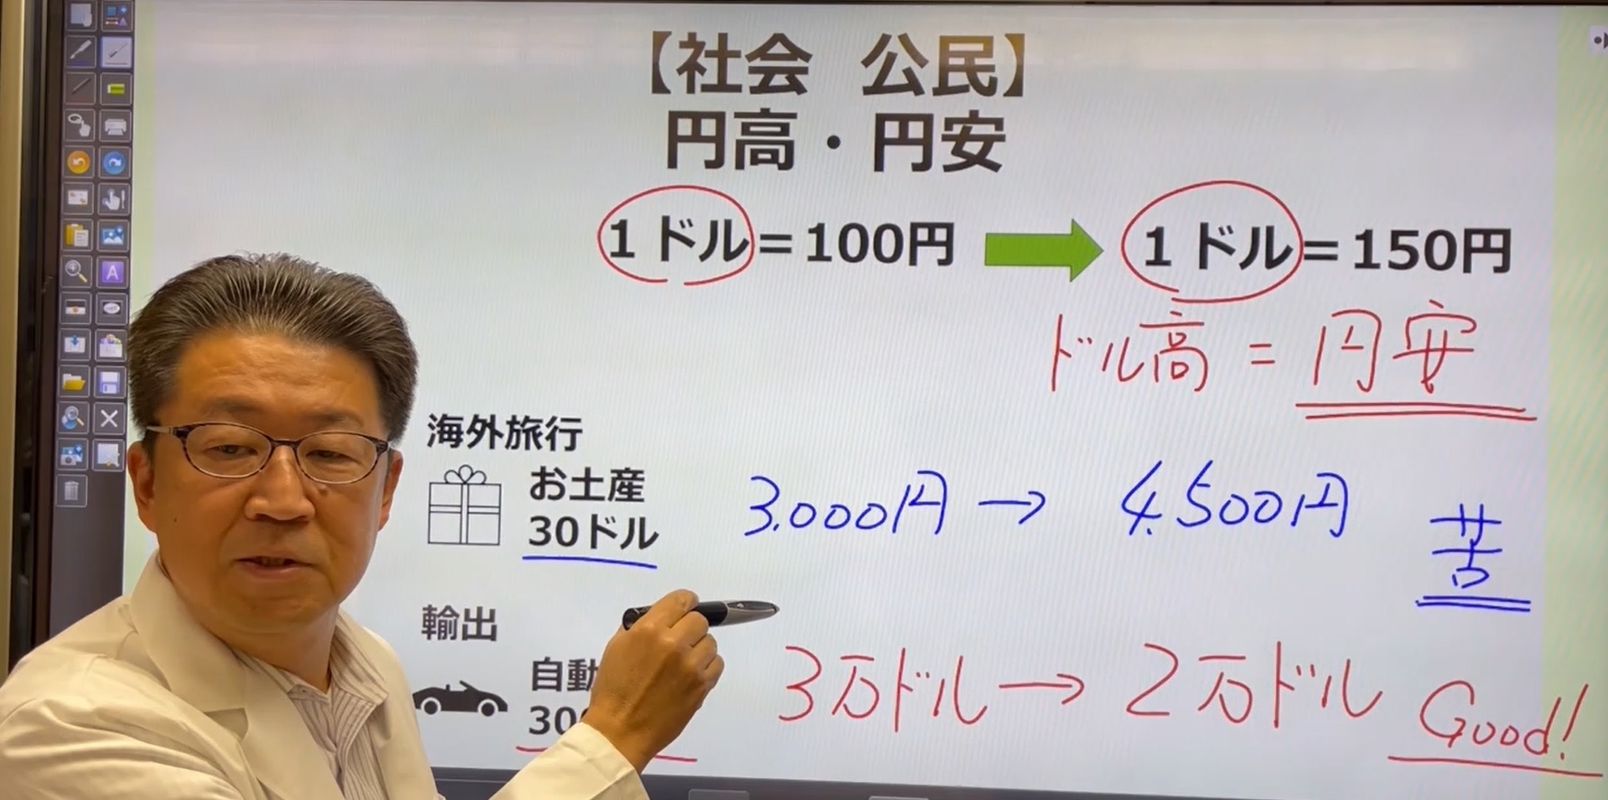 【社会 公民】
円高・円安
1ドル=100円 1ドル=150円
ドル高=円安
海外旅行
お土産
30ドル
3.000円→4.500円 苦
輸出
自動
30
3万ドル→2万ドル Good!